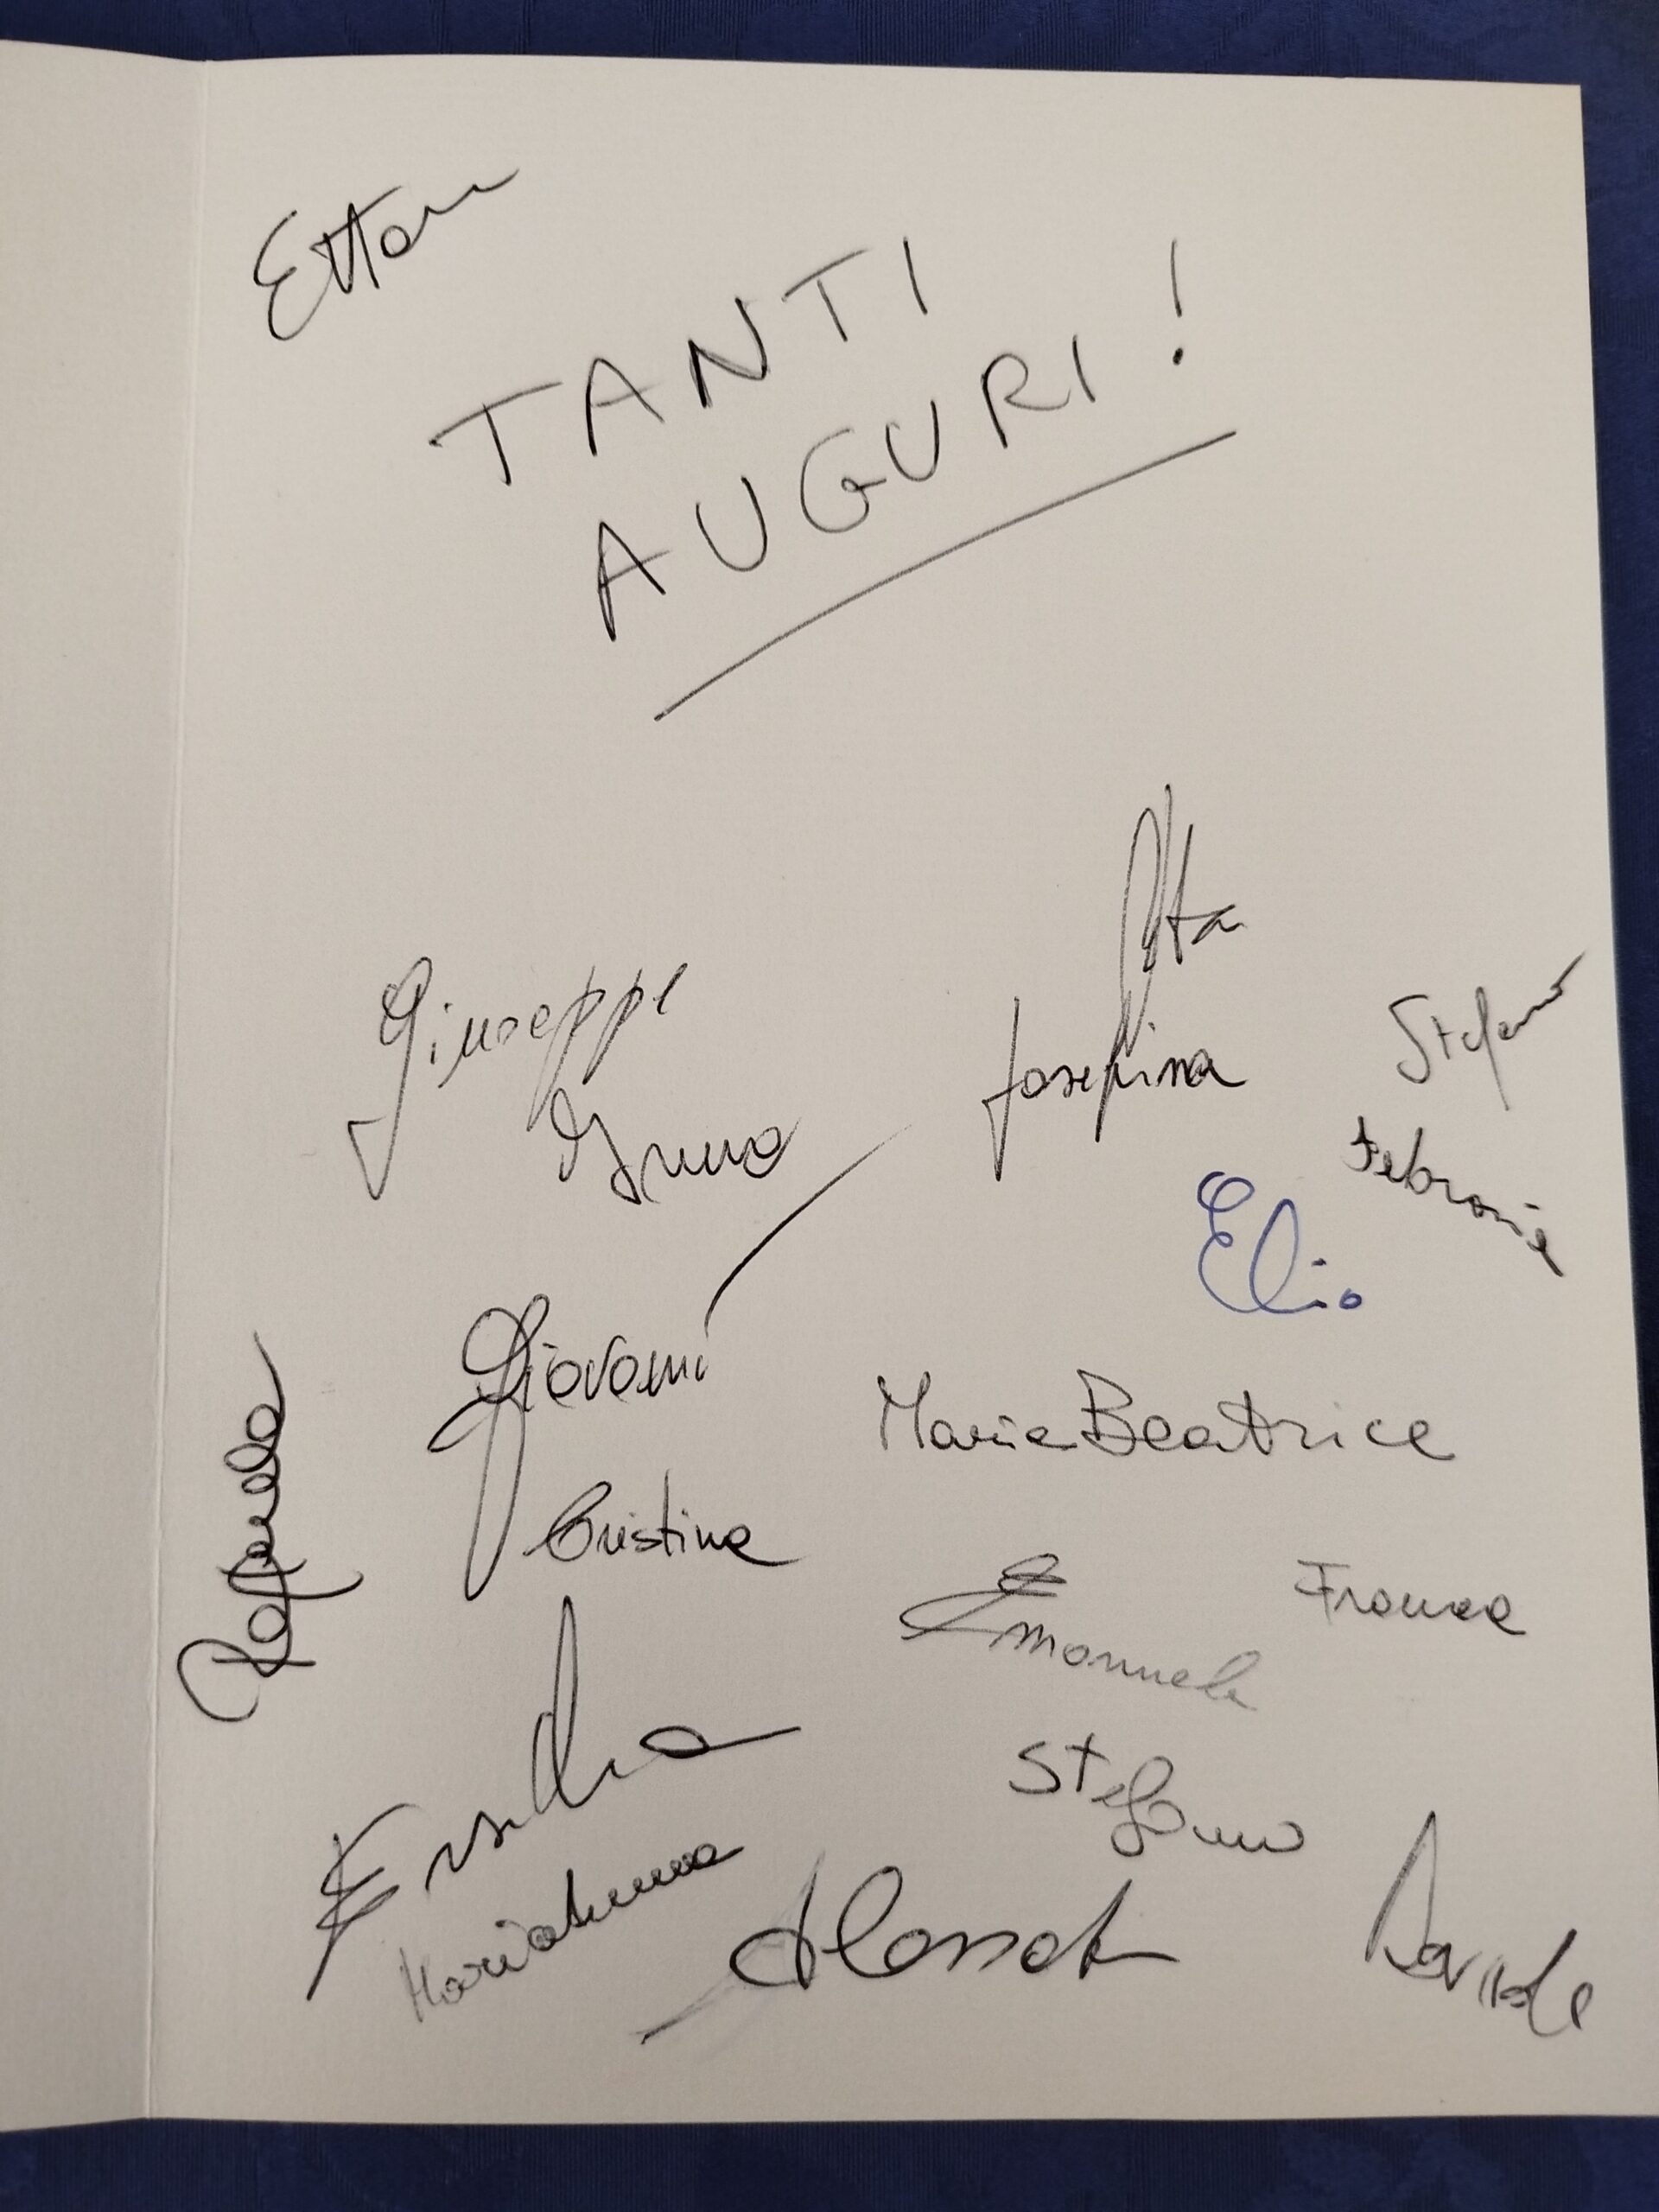 Ettore
TANTI
AUGURI!
Rita
Giuseppe
Josephina
Stefano
Bruno
Febronia
Elio
Giovanni
Maria Beatrice
Raffaela
Cristina
Emanuela
Franca
Ersilia
Stefano
Mariolumna
Davide